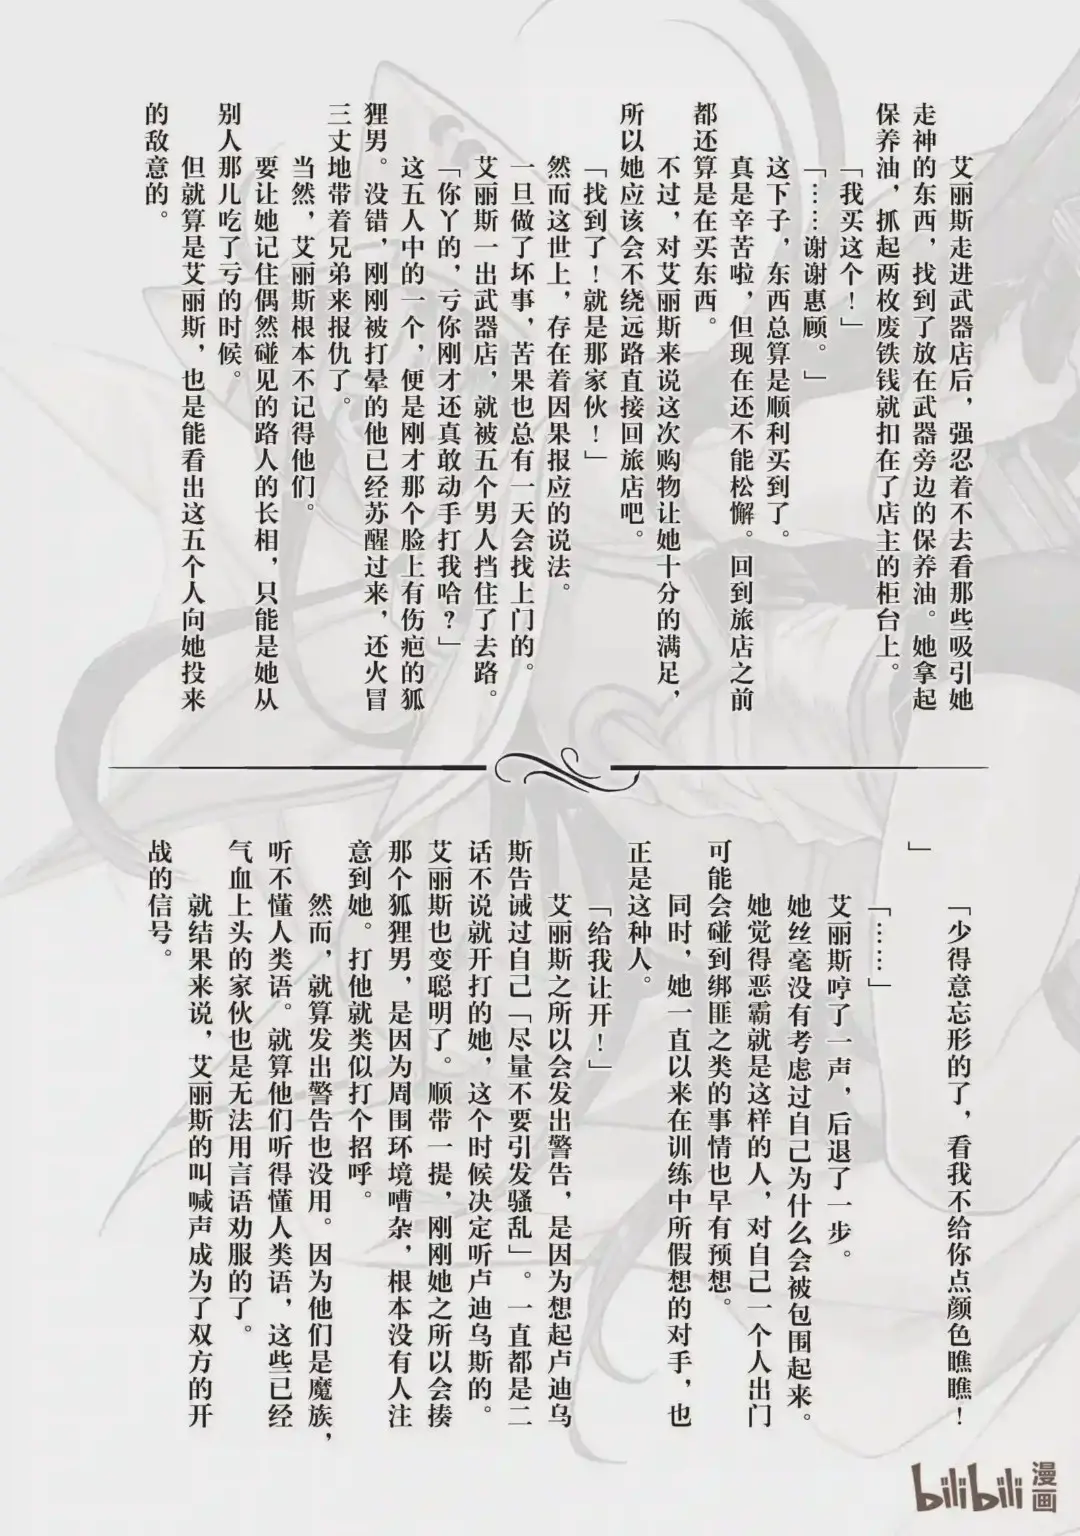 艾丽斯走进武器店后，强忍着不去看那些吸引她
走神的东西，找到了放在武器旁边的保养油。她拿起
保养油，抓起两枚废铁钱就扣在了店主的柜台上。
「我买这个！」
「……谢谢惠顾。」
这下子，东西总算是顺利买到了。
真是辛苦啦，但现在还不能松懈。回到旅店之前
都还算是在买东西。
不过，对艾丽斯来说这次购物让她十分的满足，
所以她应该会不绕远路直接回旅店吧。
「找到了！就是那家伙！」
然而这世上，存在着因果报应的说法。
一旦做了坏事，苦果也总有一天会找上门的。
艾丽斯一出武器店，就被五个男人挡住了去路。
「你丫的，亏你刚才还真敢动手打我哈？」
这五人中的一个，便是刚才那个脸上有伤疤的狐
狸男。没错，刚刚被打晕的他已经苏醒过来，还火冒
三丈地带着兄弟来报仇了。
当然，艾丽斯根本不记得他们。
要让她记住偶然碰见的路人的长相，只能是她从
别人那儿吃了亏的时候。
但就算是艾丽斯，也是能看出这五个人向她投来
的敌意的。
「少得意忘形的了，看我不给你点颜色瞧瞧！
」
「……」
艾丽斯哼了一声，后退了一步。
她丝毫没有考虑过自己为什么会被包围起来。
她觉得恶霸就是这样的人，对自己一个人出门
可能会碰到绑匪之类的事情也早有预想。
同时，她一直以来在训练中所假想的对手，也
正是这种人。
「给我让开！」
艾丽斯之所以会发出警告，是因为想起卢迪乌
斯告诫过自己「尽量不要引发骚乱」。一直都是二
话不说就开打的她，这个时候决定听卢迪乌斯的。
艾丽斯也变聪明了。顺带一提，刚刚她之所以会揍
那个狐狸男，是因为周围环境嘈杂，根本没有人注
意到她。打他就类似打个招呼。
然而，就算发出警告也没用。因为他们是魔族，
听不懂人类语。就算他们听得懂人类语，这些已经
气血上头的家伙也是无法用言语劝服的了。
就结果来说，艾丽斯的叫喊声成为了双方的开
战的信号。
bilibili 漫画